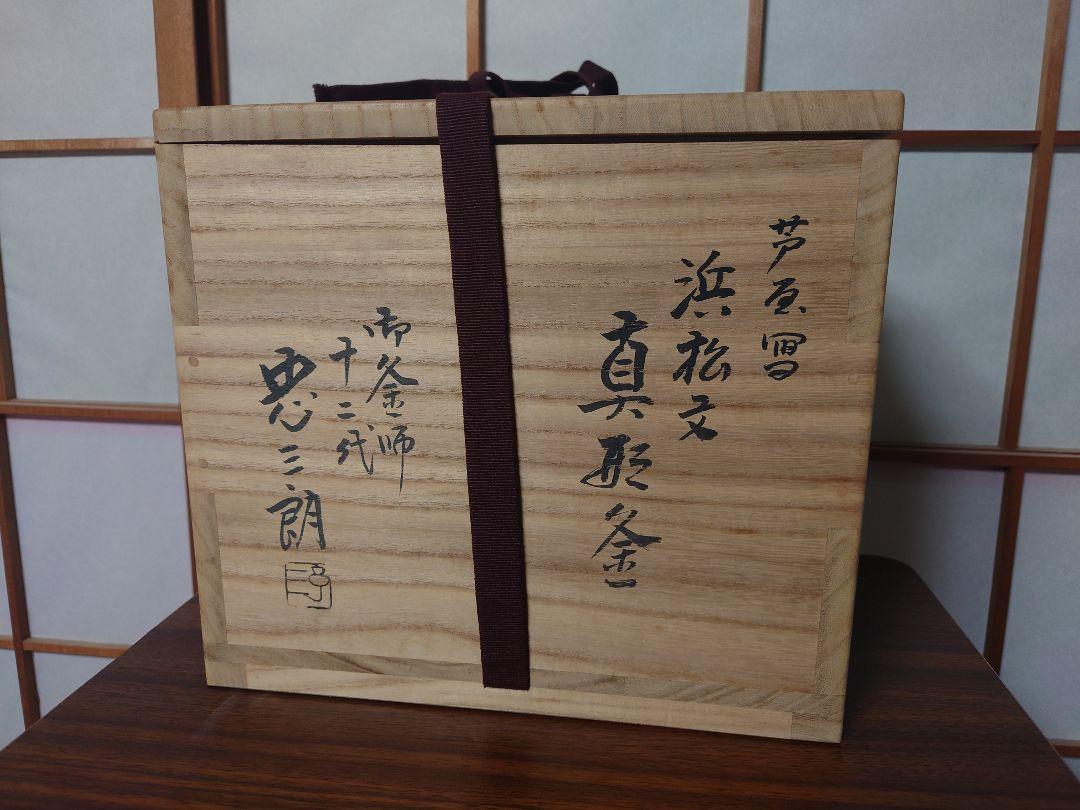 芦原写
浜松文
真形釜
御釜師
十二代
忠三朗